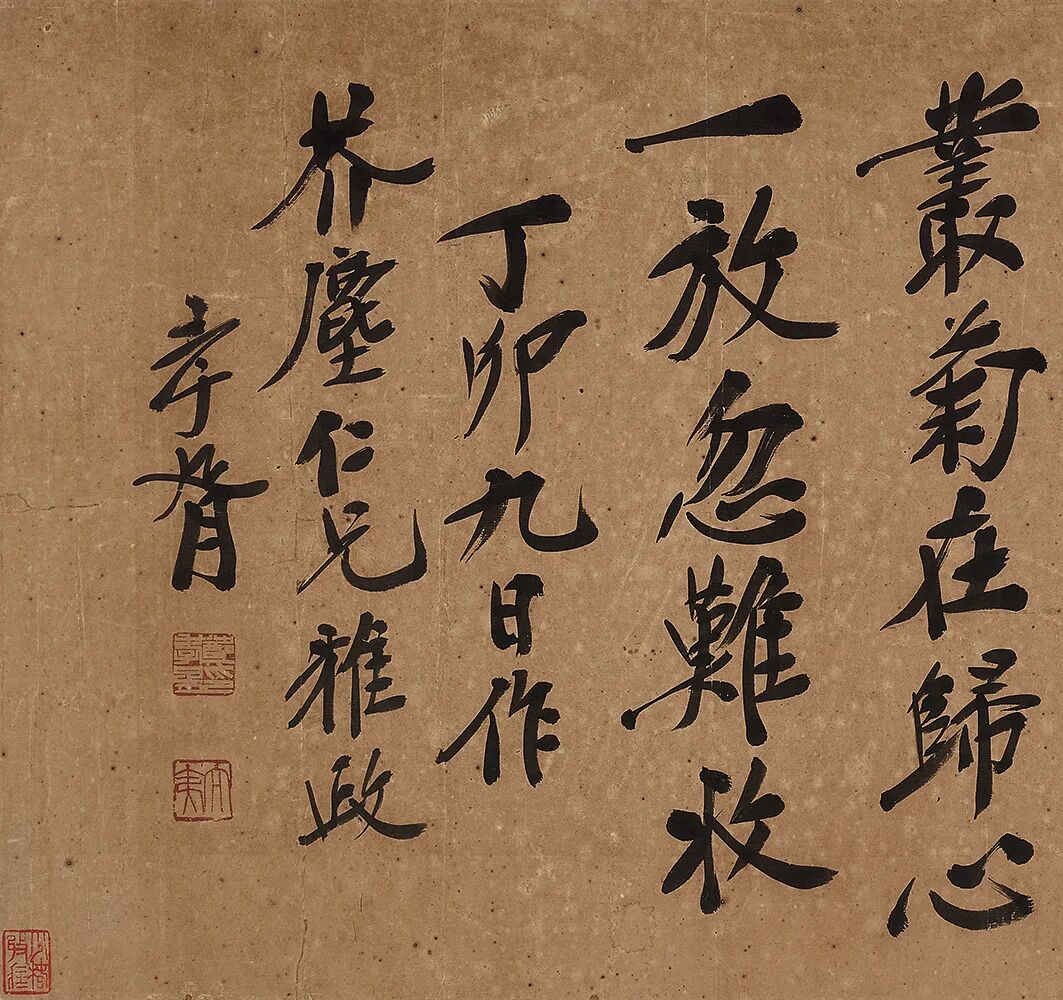 叢菊在歸心
一放忽難收
丁卯九日作
芥塵仁兄雅政
孝胥
太夷